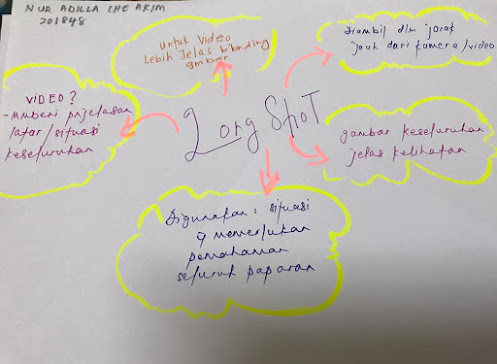 NUR ADILLA CHE AKIM
201848
Untuk Video
Lebih Jelas b'banding
gmbar
diambil dlm jarak
jauh dari kamera/video
VIDEO?
- Memberi pnjelasan
latar/situasi
keseluruhan
Long Shot
gambar keseluruhan
jelas kelihatan
Digunakan : situasi
yg memerlukan
pemahaman
seluruh paparan